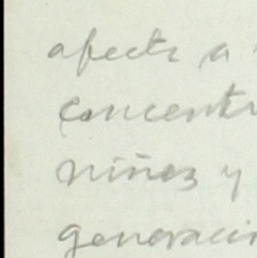 afecta a
concentr
niñez y
generacio